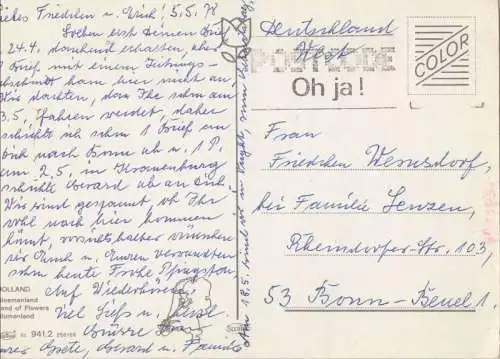 Liebes Friedchen u. Erich! 5/5. 78
Soeben erst Deinen Brief
v. 24.4. dankend erhalten, aber
1 Brief mit einem Zeitungs-
abschnitt kam hier nicht an.
Wir dachten, dass Ihr schon am
3.5. fahren werdet, daher
schickte ich schon 1 Brief an
Dich nach Bonn ab u. 1 P.
am 2.5. in Kranenburg
schickte Gerard ab an Dich
Wir sind gespannt ob Ihr
wohl nach hier kommen
könnt, vorsichtshalber wünschen
wir Euch u. Euren Verwandten
schon heute Frohe Pfingsten
Auf Wiederhören!
Viel Liebs u. herzl.
Grüsse
Eure Grete, Gerard u. Familie
Am 18.5. sind wir in Vught, zum
HOLLAND
Bloemenland
Land of Flowers
Blumenland
nl. 941.2
Deutschland
POSTCODE
Oh ja!
COLOR
Frau
Friedchen Wernsdorf,
bei Familie Lenzen,
Rheindorfer-Str. 103,
53 Bonn-Beuel 1.